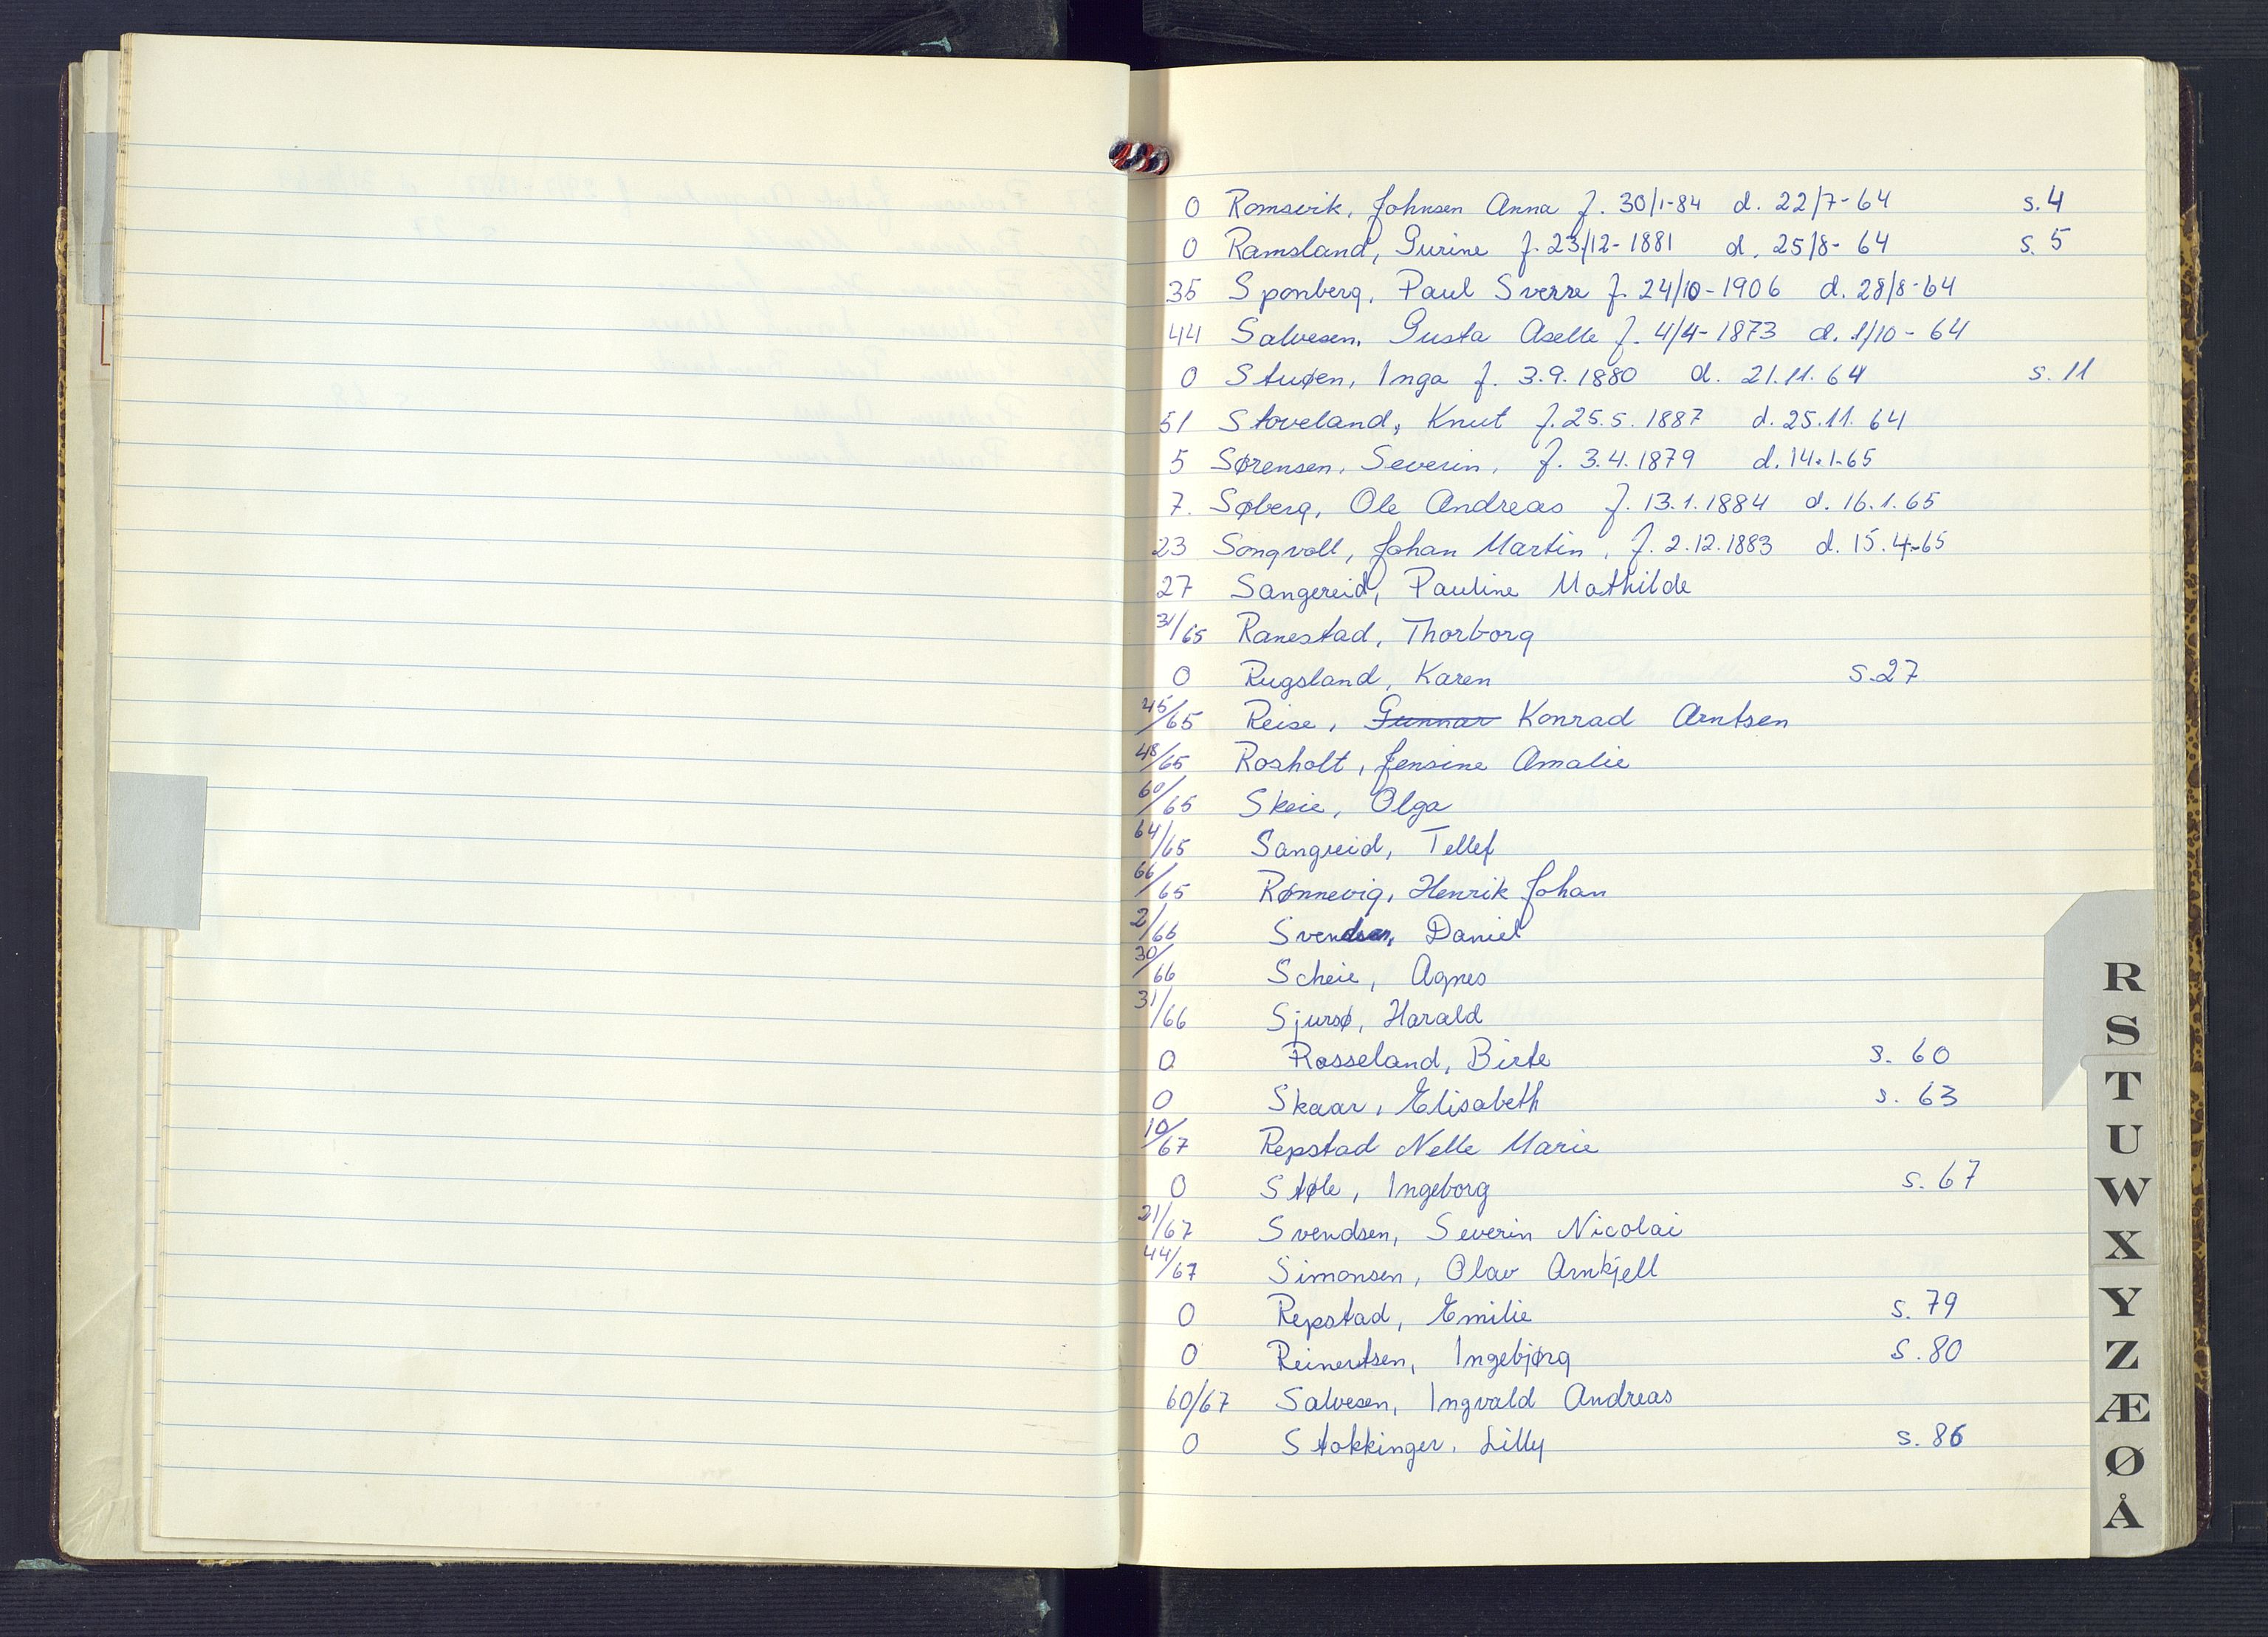 0 Romsvik, Johnsen Anna f. 30/1-84 d. 22/7-64 s.4
0 Ramsland, Gurine f. 23/12-1881 d. 25/8-64 s. 5
35 Sponberg, Paul Sverre f. 24/10-1906 d. 28/8-64
44 Salvesen, Gusta Aselle f. 4/4-1873 d. 1/10-64
0 Stuøen, Inga f. 3.9.1880 d. 21.11.64 s. 11
51 Stoveland, Knut f. 25.5.1887 d. 25.11.64
5 Sørensen, Severin, f. 3.4.1879 d. 14.1.65
7. Søberg, Ole Andreas f. 13.1.1884 d. 16.1.65
23 Songvoll, Johan Martin, f. 2.12.1883 d. 15.4-65
27 Sangereid, Pauline Mathilde
31/65 Ranestad, Thorborg
0 Rugsland, Karen s.27
45/65 Reise, Gunnar Konrad Arntsen
48/65 Rosholt, Jensine Amalie
60/65 Skeie, Olga
64/65 Sangreid, Tellef
66/65 Rønnevig, Henrik Johan
2/66 Svendsen, Daniel
30/66 Scheie, Agnes
31/66 Sjursø, Harald
0 Rosseland, Birte s. 60
0 Skaar, Elisabeth s. 63
10/67 Repstad Nelle Marie
0 Støle, Ingeborg s. 67
21/67 Svendsen, Severin Nicolai
44/67 Simonsen, Olav Arnkjell
0 Repstad, Emilie s. 79
0 Reinertsen, Ingebjørg s. 80
60/67 Salvesen, Ingvald Andreas
0 Stokkinger, Lilly s. 86
R
S
T
U
W
X
Y
Z
Æ
Ø
Å